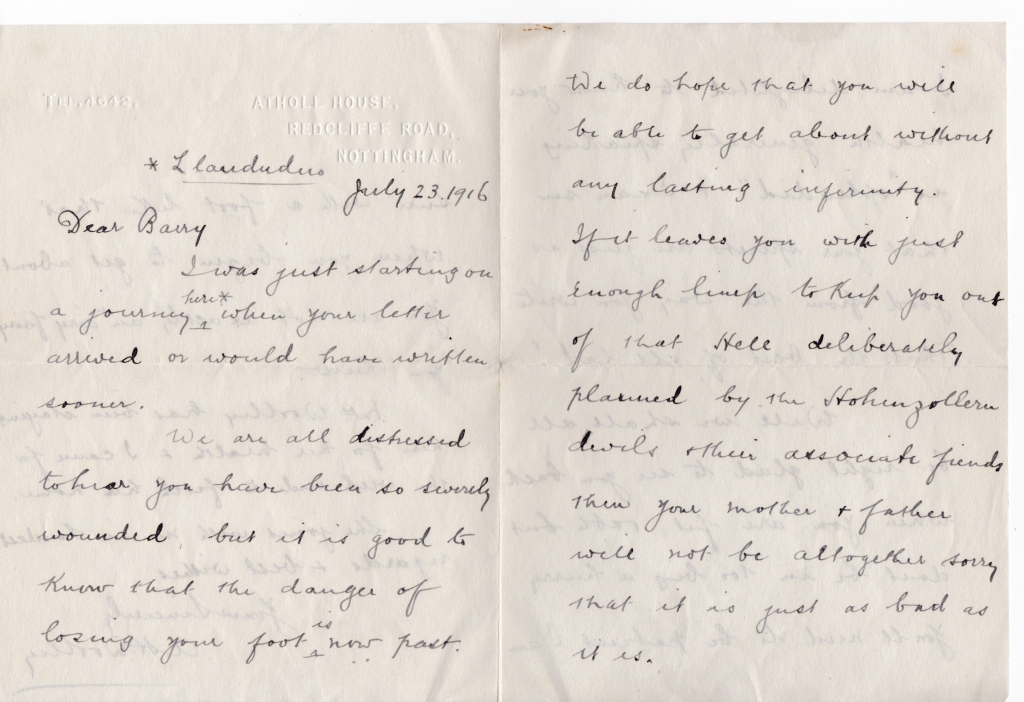 TEL. 4642.
ATHOLL HOUSE,
REDCLIFFE ROAD,
NOTTINGHAM.
* Llandudno
July 23. 1916
Dear Barry
I was just starting on
a journey here* when your letter
arrived or would have written
sooner.
We are all distressed
to hear you have been so severely
wounded, but it is good to
know that the danger of
losing your foot is now past.
We do hope that you will
be able to get about without
any lasting infirmity.
If it leaves you with just
enough limp to keep you out
of that Hell deliberately
planned by the Hohenzollern
devils & their associate fiends
then your mother & father
will not be altogether sorry
that it is just as bad as
it is.